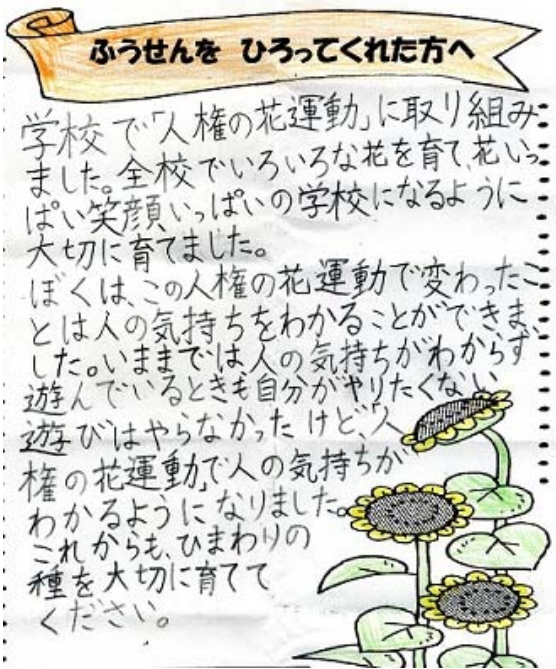 ふうせんを ひろってくれた方へ
学校で「人権の花運動」に取り組み
ました。全校でいろいろな花を育て、花いっ
ぱい笑顔いっぱいの学校になるように
大切に育てました。
ぼくは、この人権の花運動で変わったこ
とは人の気持ちをわかることができま
した。いままでは人の気持ちがわからず
遊んでいるときも自分がやりたくない
遊びはやらなかったけど、「人
権の花運動」で人の気持ちが
わかるようになりました。
これからも、ひまわりの
種を大切に育てて
ください。